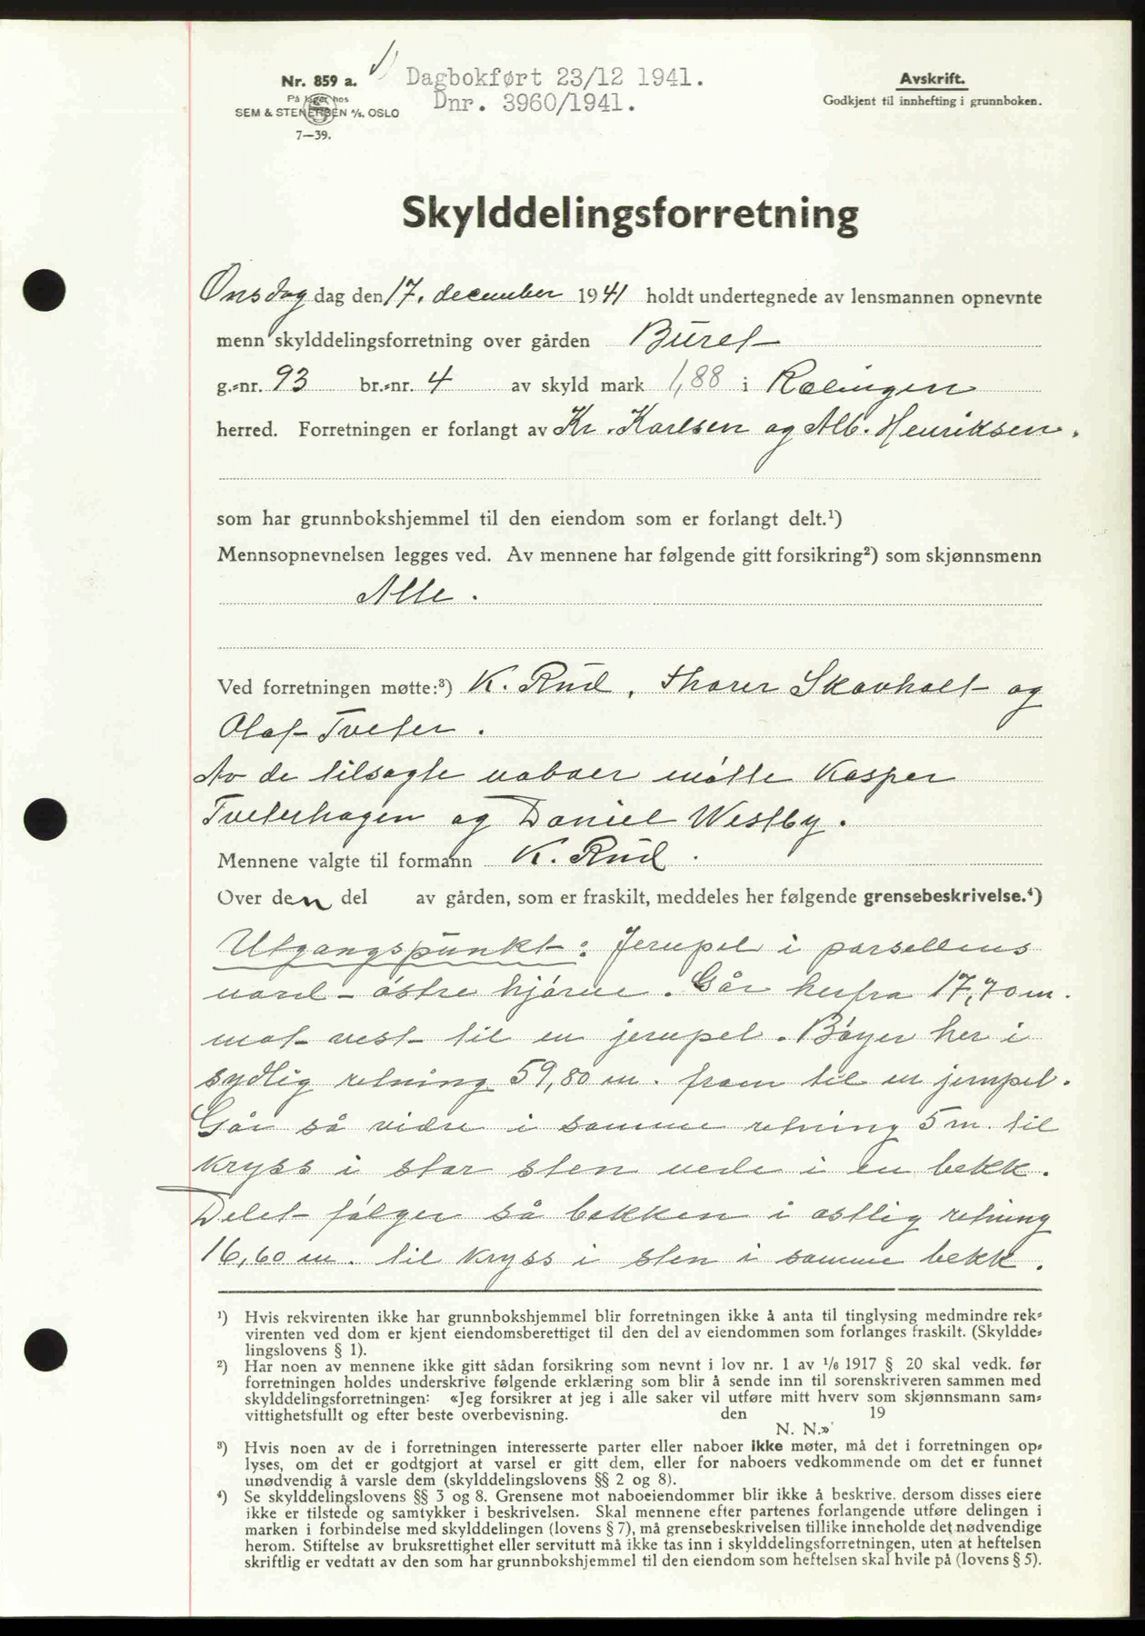 Nr. 859 a.
På lager hos
SEM & STENERSEN A/S. OSLO
7—39.
Dagbokført 23/12 1941.
Dnr. 3960/1941.
Avskrift.
Godkjent til innhefting i grunnboken.
Skylddelingsforretning
Onsdag dag den 17. december 1941 holdt undertegnede av lensmannen opnevnte
menn skylddelingsforretning over gården Buret
g.-nr. 93 br.-nr. 4 av skyld mark 1,88 i Rælingen
herred. Forretningen er forlangt av Kr. Karlsen og Alb. Henriksen.
som har grunnbokshjemmel til den eiendom som er forlangt delt.¹)
Mennsopnevnelsen legges ved. Av mennene har følgende gitt forsikring²) som skjønnsmenn
Alle.
Ved forretningen møtte:³) K. Rud, Thorer Skavholt og
Olaf Tveter.
Av de tilsagte naboer møtte Kasper
Tveterhagen og Daniel Westby.
Mennene valgte til formann K. Rud.
Over den del av gården, som er fraskilt, meddeles her følgende grensebeskrivelse.⁴)
Utgangspunkt: Jernpel i parsellens
nord-østre hjørne. Går herfra 17,70 m.
mot vest til en jernpel. Bøyer her i
sydlig retning 59,80 m. fram til en jernpel.
Går så vidre i samme retning 5 m. til
kryss i stor sten nede i en bekk.
Delet følger så bekken i østlig retning
16,60 m. til kryss i sten i samme bekk.
¹) Hvis rekvirenten ikke har grunnbokshjemmel blir forretningen ikke å anta til tinglysing medmindre rek-
virenten ved dom er kjent eiendomsberettiget til den del av eiendommen som forlanges fraskilt. (Skyldde-
lingslovens § 1).
²) Har noen av mennene ikke gitt sådan forsikring som nevnt i lov nr. 1 av 1/6 1917 § 20 skal vedk. før
forretningen holdes underskrive følgende erklæring som blir å sende inn til sorenskriveren sammen med
skylddelingsforretningen: «Jeg forsikrer at jeg i alle saker vil utføre mitt hverv som skjønnsmann sam-
vittighetsfullt og efter beste overbevisning. den 19
N. N.»
³) Hvis noen av de i forretningen interesserte parter eller naboer ikke møter, må det i forretningen op-
lyses, om det er godtgjort at varsel er gitt dem, eller for naboers vedkommende om det er funnet
unødvendig å varsle dem (skylddelingslovens §§ 2 og 8).
⁴) Se skylddelingslovens §§ 3 og 8. Grensene mot naboeiendommer blir ikke å beskrive, dersom disses eiere
ikke er tilstede og samtykker i beskrivelsen. Skal mennene efter partenes forlangende utføre delingen i
marken i forbindelse med skylddelingen (lovens § 7), må grensebeskrivelsen tillike inneholde det nødvendige
herom. Stiftelse av bruksrettighet eller servitutt må ikke tas inn i skylddelingsforretningen, uten at heftelsen
skriftlig er vedtatt av den som har grunnbokshjemmel til den eiendom som heftelsen skal hvile på (lovens § 5).